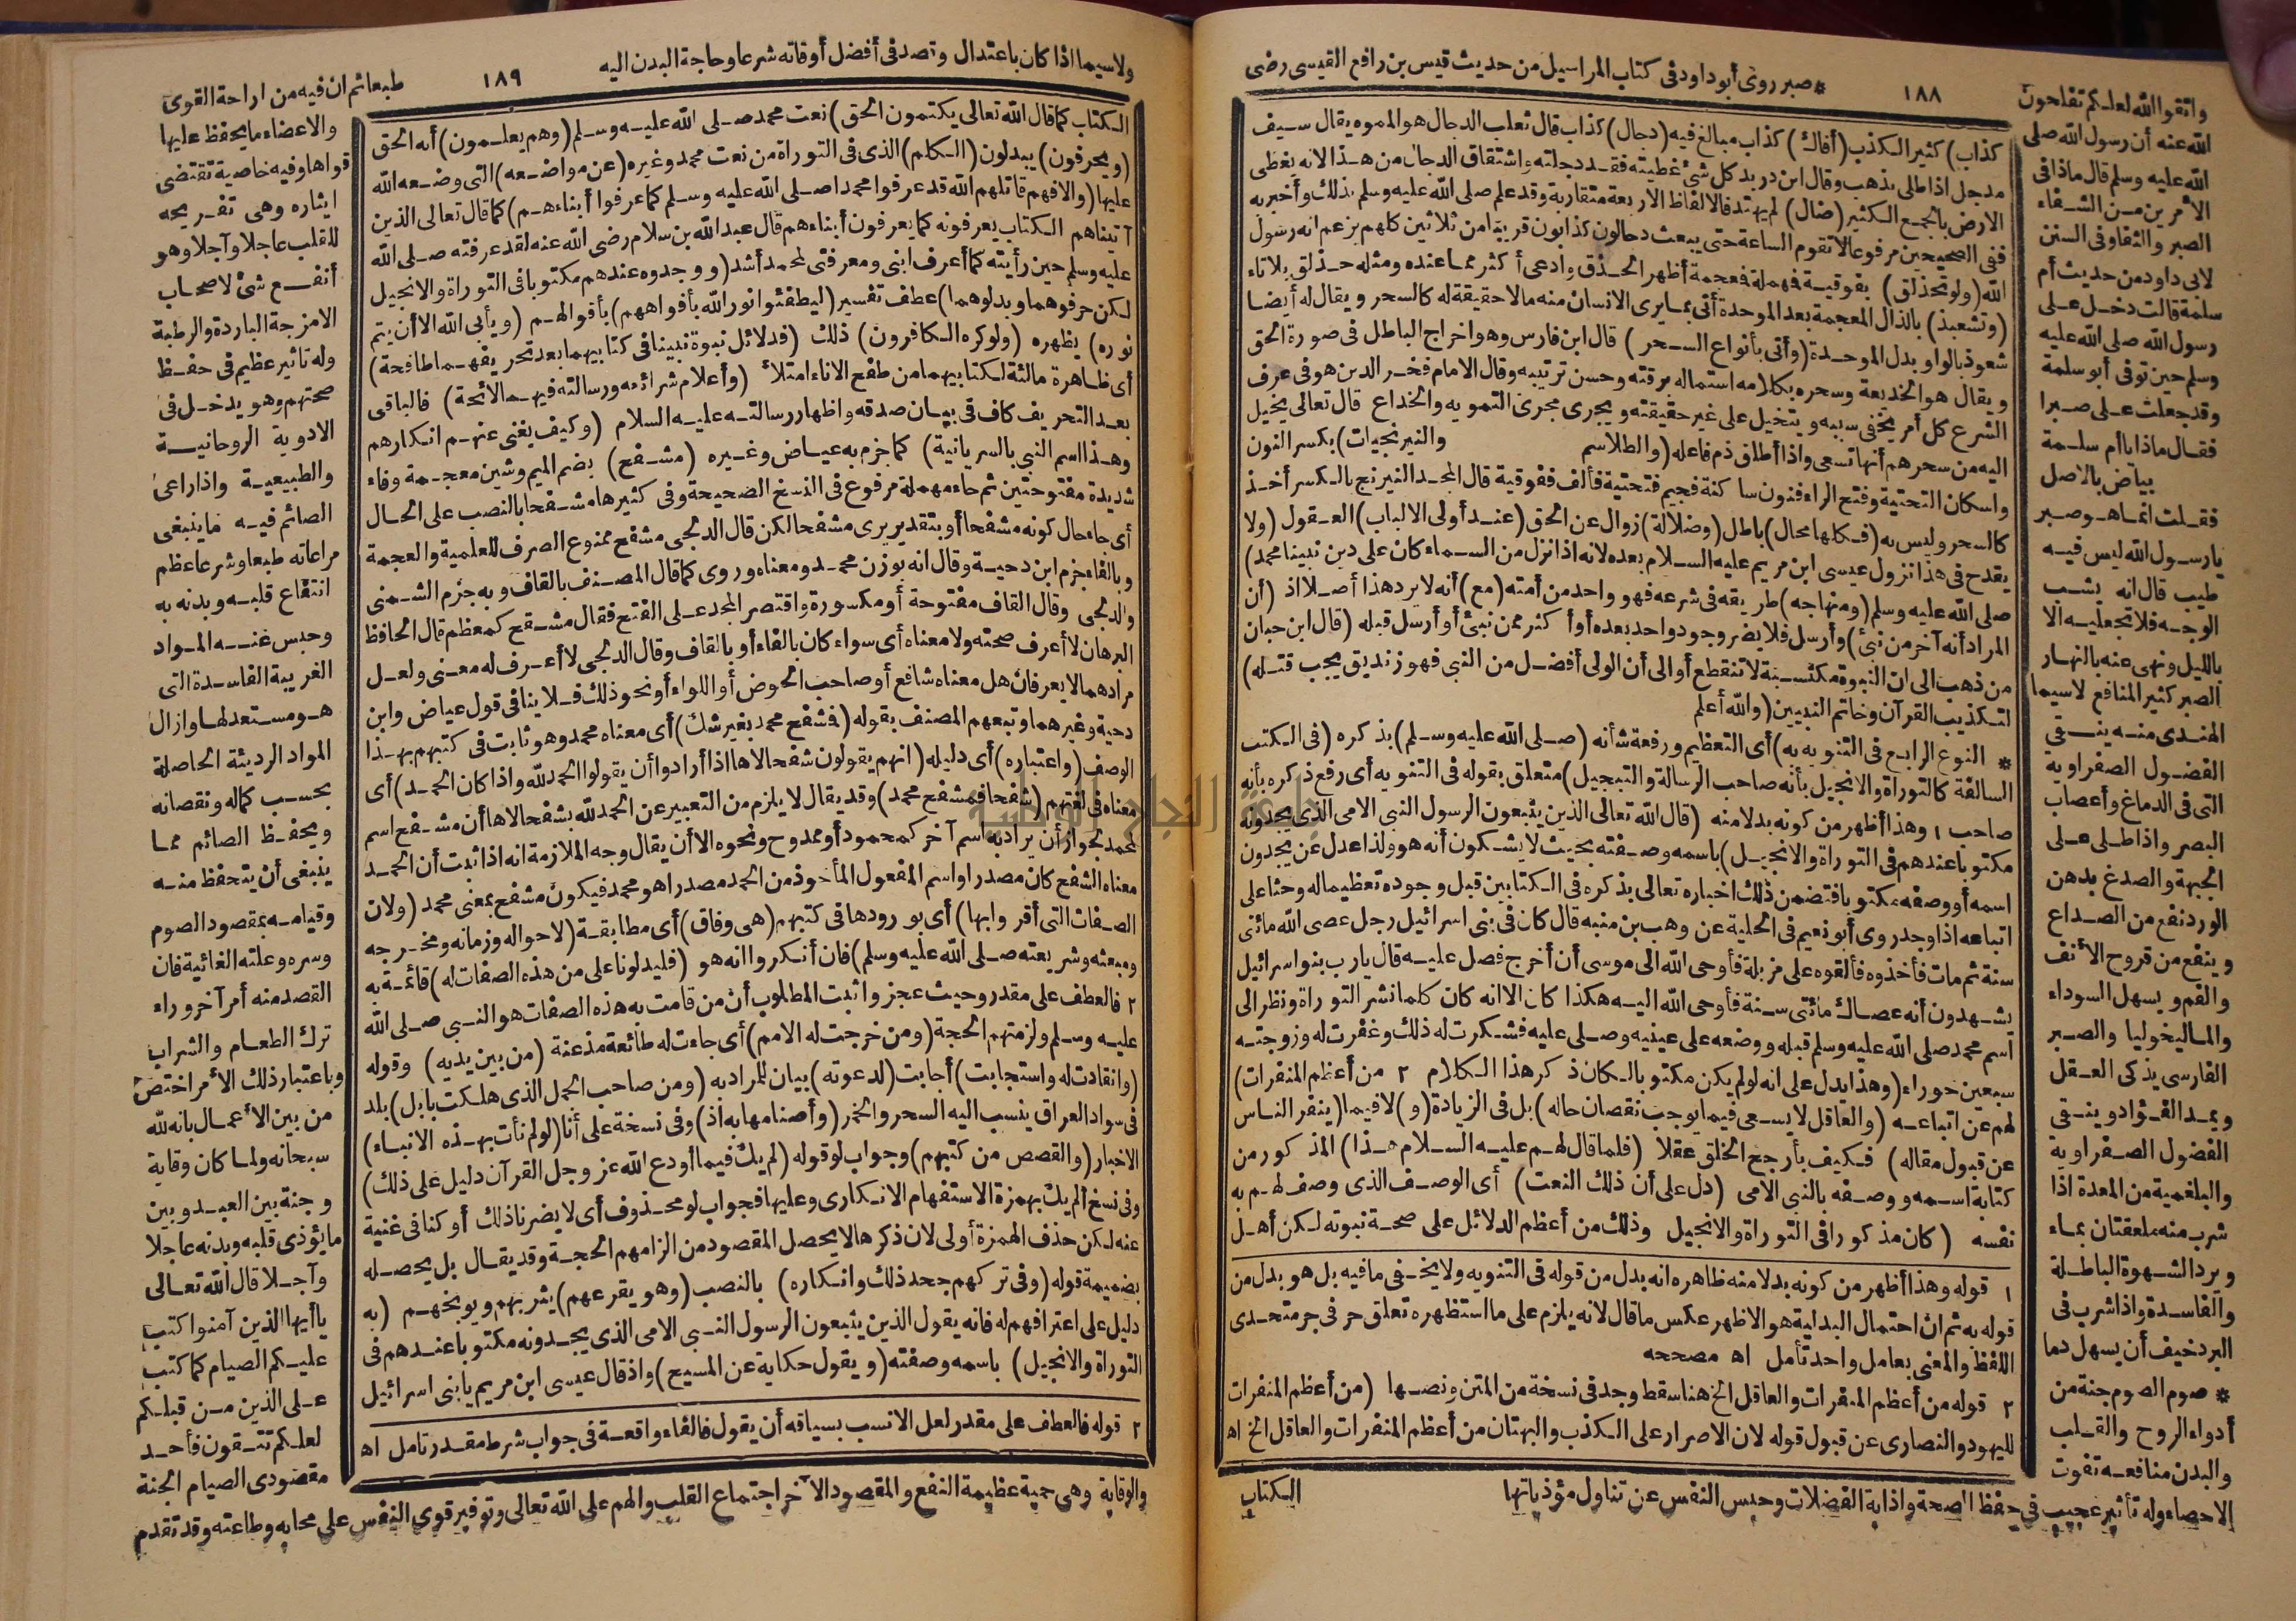 ١٨٨
* صبر روى أبو داود فى كتاب المراسيل من حديث قيس بن رافع القيسى رضى
كذاب) كثير الكذب (أفاك) كذاب مبالغ فيه (دجال) كذاب قال ثعلب الدجال هو المموه يقال سيف
مدجل اذا طلى بذهب وقال ابن دريد كل شئ غطيته فقد دجلته واشتقاق الدجال من هذا لانه يغطى
الارض بالجمع الكثير (ضال) لم يهتد فالالفاظ الاربعة متقاربة وقد علم صلى الله عليه وسلم بذلك وأخبر به
ففى الصحيحين مرفوعا لا تقوم الساعة حتى يبعث دجالون كذابون قريبا من ثلاثين كلهم يزعم انه رسول
الله (ولو تحذلق) بفوقية فهملة فعجمة أظهر الحذق وادعى أكثر مما عنده ومثله حذلق بلا تاء
(وتشعبذ) بالذال المعجمة بعد الموحدة أتى بما يرى الانسان منه مالا حقيقة له كالسحر ويقال له أيضا
شعوذ بالواو بدل الموحدة (وأتى بأنواع السحر) قال ابن فارس وهو اخراج الباطل فى صورة الحق
ويقال هو الخديعة وسحره بكلامه استماله برقته وحسن ترتيبه وقال الامام فخر الدين هو فى عرف
الشرع كل أمر يخفى سببه ويتخيل على غير حقيقته ويجرى مجرى التمويه والخداع قال تعالى يخيل
اليه من سحرهم أنها تسعى واذا أطلق ذم فاعله (والطلاسم والنيرنجيات) بكسر النون
واسكان التحتية وفتح الراء فنون ساكنة فجيم فتحتية فألف ففوقية قال المجد النيرنج بالكسر أخذ
كالسحر وليس به (فكلها محال) باطل (وضلالة) زوال عن الحق (عند أولى الالباب) العقول (ولا
يقدح فى هذا نزول عيسى ابن مريم عليه السلام بعده لانه اذا نزل من السماء كان على دين نبينا محمد)
صلى الله عليه وسلم (ومنهاجه) طريقه فى شرعه فهو واحد من أمته (مع) أنه لا يرد هذا أصلا اذ (أن
المراد أنه آخر من نبئ) وأرسل فلا يضر وجود واحد بعده أو أكثر ممن نبئ أو أرسل قبله (قال ابن حبان
من ذهب الى ان النبوة مكتسبة لا تنقطع أو الى أن الولى أفضل من النبى فهو زنديق يجب قتله)
لتكذيب القرآن وخاتم النبيين (والله أعلم
* النوع الرابع فى التنويه به) أى التعظيم ورفعة شأنه (صلى الله عليه وسلم) بذكره (فى الكتب
السالفة كالتوراة والانجيل بأنه صاحب الرسالة والتبجيل) متعلق بقوله فى التنويه أى رفع ذكره بأنه
صاحب ١ وهذا أظهر من كونه بدلا منه (قال الله تعالى الذين يتبعون الرسول النبى الامى الذى يجدونه
مكتوبا عندهم فى التوراة والانجيل) باسمه وصفته بحيث لا يشكون أنه هو ولذا عدل عن يجدون
اسمه أو وصفه مكتوبا فتضمن ذلك اخباره تعالى بذكره فى الكتابين قبل وجوده تعظيما له وحثا على
اتباعه اذا وجد روى أبو نعيم فى الحلية عن وهب بن منبه قال كان فى بنى اسرائيل رجل عصى الله مائتى
سنة ثم مات فأخذوه فألقوه على مزبلة فأوحى الله الى موسى أن أخرج فصل عليه قال يارب بنو اسرائيل
يشهدون أنه عصاك مائتى سنة فأوحى الله اليه هكذا كان الا انه كان كلما نشر التوراة ونظر الى
اسم محمد صلى الله عليه وسلم قبله ووضعه على عينيه وصلى عليه فشكرت له ذلك وغفرت له وزوجته
سبعين حوراء (وهذا يدل على انه لو لم يكن مكتوبا لكان ذكر هذا الكلام ٢ من أعظم المنفرات)
لهم عن اتباعه (والعاقل لا يسعى فيما يوجب نقصان حاله) بل فى الزيادة (و) لا فيما (ينفر الناس
عن قبول مقاله) فكيف بأرجح الخلق عقلا (فلما قال لهم عليه السلام هذا) المذكور من
كتابة اسمه ووصفه بالنبى الامى (دل على أن ذلك النعت) أى الوصف الذى وصف لهم به
نفسه (كان مذكورا فى التوراة والانجيل وذلك من أعظم الدلائل على صحة نبوته لكن أهل
١ قوله وهذا أظهر من كونه بدلا منه ظاهره انه بدل من قوله فى التنويه ولا يخفى ما فيه بل هو بدل من
قوله به ثم ان احتمال البدلية هو الاظهر عكس ما قال لانه يلزم على ما استظهره تعلق حرفى جر متحدى
اللفظ والمعنى بعامل واحد تأمل اه مصححه
٢ قوله من أعظم المنفرات والعاقل الخ هنا سقط وجد فى نسخة من المتن ونصها (من أعظم المنفرات
لليهود والنصارى عن قبول قوله لان الاصرار على الكذب والبهتان من أعظم المنفرات والعاقل الخ اه
الكتاب
واتقوا الله لعلكم تفلحون
الله عنه أن رسول الله صلى
الله عليه وسلم قال ماذا فى
الأمرين من الشفاء
الصبر والثفا وفى السنن
لابى داود من حديث أم
سلمة قالت دخل على
رسول الله صلى الله عليه
وسلم حين توفى أبو سلمة
وقد جعلت على صبرا
فقال ماذا يا أم سلمة
بياض بالاصل
فقلت انما هو صبر
يا رسول الله ليس فيه
طيب قال انه يشب
الوجه فلا تجعليه الا
بالليل ونهى عنه بالنهار
الصبر كثير المنافع لاسيما
الهندى منه ينقى
الفضول الصفراوية
التى فى الدماغ وأعصاب
البصر واذا طلى على
الجبهة والصدغ بدهن
الورد نفع من الصداع
وينفع من قروح الأنف
والفم ويسهل السوداء
والماليخوليا والصبر
الفارسى يذكى العقل
ويمد الفؤاد وينقى
الفضول الصفراوية
والبلغمية من المعدة اذا
شرب منه ملعقتان بماء
ويرد الشهوة الباطلة
والفاسدة واذا شرب فى
البرد خيف أن يسهل دما
* صوم الصوم جنة من
أدواء الروح والقلب
والبدن منافعه تفوت
الاحصاء وله تأثير عجيب فى حفظ الصحة واذابة الفضلات وحبس النفس عن تناول مؤذياتها
١٨٩
ولاسيما اذا كان باعتدال وقصد فى أفضل أوقاته شرعا وحاجة البدن اليه
الكتاب كما قال الله تعالى يكتمون الحق) نعت محمد صلى الله عليه وسلم (وهم يعلمون) أنه الحق
(ويحرفون) يبدلون (الكلم) الذى فى التوراة من نعت محمد وغيره (عن مواضعه) التى وضعه الله
عليها (والا فهم قاتلهم الله قد عرفوا محمدا صلى الله عليه وسلم كما عرفوا أبناءهم) كما قال تعالى الذين
آتيناهم الكتاب يعرفونه كما يعرفون أبناءهم قال عبد الله بن سلام رضى الله عنه لقد عرفته صلى الله
عليه وسلم حين رأيته كما أعرف ابنى ومعرفتى لمحمد أشد (ووجدوه عندهم مكتوبا فى التوراة والانجيل
لكن حرفوهما وبدلوهما) عطف تفسير (ليطفئوا نور الله بأفواههم) بأقوالهم (ويأبى الله الا أن يتم
نوره) يظهره (ولو كره الكافرون) ذلك (فدلائل نبوة نبينا فى كتابيهما بعد تحريفهما طافحة)
أى ظاهرة مالئة لكتابيهما من طفح الاناء امتلأ (وأعلام شرائعه ورسالته فيهما لائحة) فالباقى
بعد التحريف كاف فى بيان صدقه واظهار رسالته عليه السلام (وكيف يغنى عنهم انكارهم
وهذا اسم النبى بالسريانية) كما جزم به عياض وغيره (مشفح) بضم الميم وشين معجمة وفاء
شديدة مفتوحتين ثم حاء مهملة مرفوع فى النسخ الصحيحة وفى كثيرها مشفحا بالنصب على الحال
أى جاء حال كونه مشفحا أو بتقدير يرى مشفحا لكن قال الدلجى مشفح ممنوع الصرف للعلمية والعجمة
وبالفاء جزم ابن دحية وقال انه بوزن محمد ومعناه وروى كما قال المصنف بالقاف وبه جزم الشمنى
والدلجى وقال القاف مفتوحة أو مكسورة واقتصر المجد على الفتح فقال مشقح كمعظم قال الحافظ
البرهان لا أعرف صحته ولا معناه أى سواء كان بالفاء أو بالقاف وقال الدلجى لا أعرف له معنى ولعل
مرادهما لا يعرفان هل معناه شافع أو صاحب الحوض أو اللواء أو نحو ذلك فلا ينافى قول عياض وابن
دحية وغيرهما وتبعهم المصنف بقوله (فشفح محمد بغير شك) أى معناه محمد وهو ثابت فى كتبهم بهذا
الوصف (واعتباره) أى دليله (انهم يقولون شفحا لاها اذا أرادوا أن يقولوا الحمد لله واذا كان الحمد) أى
معناه فى لغتهم (شفحا فمشفح محمد) وقد يقال لا يلزم من التعبير عن الحمد لله بشفحا لاها أن مشفح اسم
محمد لجواز أن يراد به اسم آخر كمحمود أو ممدوح ونحوه الا أن يقال وجه الملازمة انه اذا ثبت أن الحمد
معناه الشفح كان مصدرا واسم المفعول المأخوذ من الحمد مصدرا هو محمد فيكون مشفح بمعنى محمد (ولان
الصفات التى أقروا بها) أى بورودها فى كتبهم (هى وفاق) أى مطابقة (لاحواله وزمانه ومخرجه
ومبعثه وشريعته صلى الله عليه وسلم) فان أنكروا انه هو (فليدلونا على من هذه الصفات له) قائمة به
٢ فالعطف على مقدر وحيث عجزوا ثبت المطلوب أن من قامت به هذه الصفات هو النبى صلى الله
عليه وسلم ولزمتهم الحجة (ومن خرجت له الامم) أى جاءت له طائعة مذعنة (من بين يديه) وقوله
(وانقادت له واستجابت) أجابت (لدعوته) بيان للمراد به (ومن صاحب الجمل الذى هلكت بابل) بلد
فى سواد العراق ينسب اليه السحر والخمر (وأصنامها به اذ) وفى نسخة على أنا (لو لم نأت بهذه الانباء)
الاخبار (والقصص من كتبهم) وجواب لو قوله (لم يك فيما أودع الله عز وجل القرآن دليل على ذلك)
وفى نسخ ألم يك بهمزة الاستفهام الانكارى وعليها فجواب لو محذوف أى لا يضرنا ذلك أو كنا فى غنية
عنه لكن حذف الهمزة أولى لان ذكرها لا يحصل المقصود من الزامهم الحجة وقد يقال بل يحصله
بضميمة قوله (وفى تركهم جحد ذلك وانكاره) بالنصب (وهو يقرعهم) يثربهم ويوبخهم (به
دليل على اعترافهم له فانه يقول الذين يتبعون الرسول النبى الامى الذى يجدونه مكتوبا عندهم فى
التوراة والانجيل) باسمه وصفته (ويقول حكاية عن المسيح) واذ قال عيسى ابن مريم يا بنى اسرائيل
٢ قوله فالعطف على مقدر لعل الانسب بسياقه أن يقول فالفاء واقعة فى جواب شرط مقدر تامل اه
طبعا ثم ان فيه من اراحة القوى
والاعضاء ما يحفظ عليها
قواها وفيه خاصية تقتضى
ايثاره وهى تفريحه
للقلب عاجلا وآجلا وهو
أنفع شئ لاصحاب
الامزجة الباردة والرطبة
وله تاثير عظيم فى حفظ
صحتهم وهو يدخل فى
الادوية الروحانية
والطبيعية واذا راعى
الصائم فيه ما ينبغى
مراعاته طبعا وشرعا عظم
انتفاع قلبه وبدنه به
وحبس عنه المواد
الغريبة الفاسدة التى
هو مستعد لها وازال
المواد الرديئة الحاصلة
بحسب كماله ونقصانه
ويحفظ الصائم مما
ينبغى أن يتحفظ منه
وقيامه بمقصود الصوم
وسره وعلته الغائية فان
القصد منه أمر آخر وراء
ترك الطعام والشراب
وباعتبار ذلك الأمر اختص
من بين الأعمال بانه لله
سبحانه ولما كان وقاية
وجنة بين العبد وبين
ما يؤذى قلبه وبدنه عاجلا
وآجلا قال الله تعالى
يا أيها الذين آمنوا كتب
عليكم الصيام كما كتب
على الذين من قبلكم
لعلكم تتقون فأحد
مقصودى الصيام الجنة
والوقاية وهى حمية عظيمة النفع والمقصود الآخر اجتماع القلب والهم على الله تعالى وتوفير قوى النفس على محابه وطاعته وقد تقدم
جامعة النجاح الوطنية